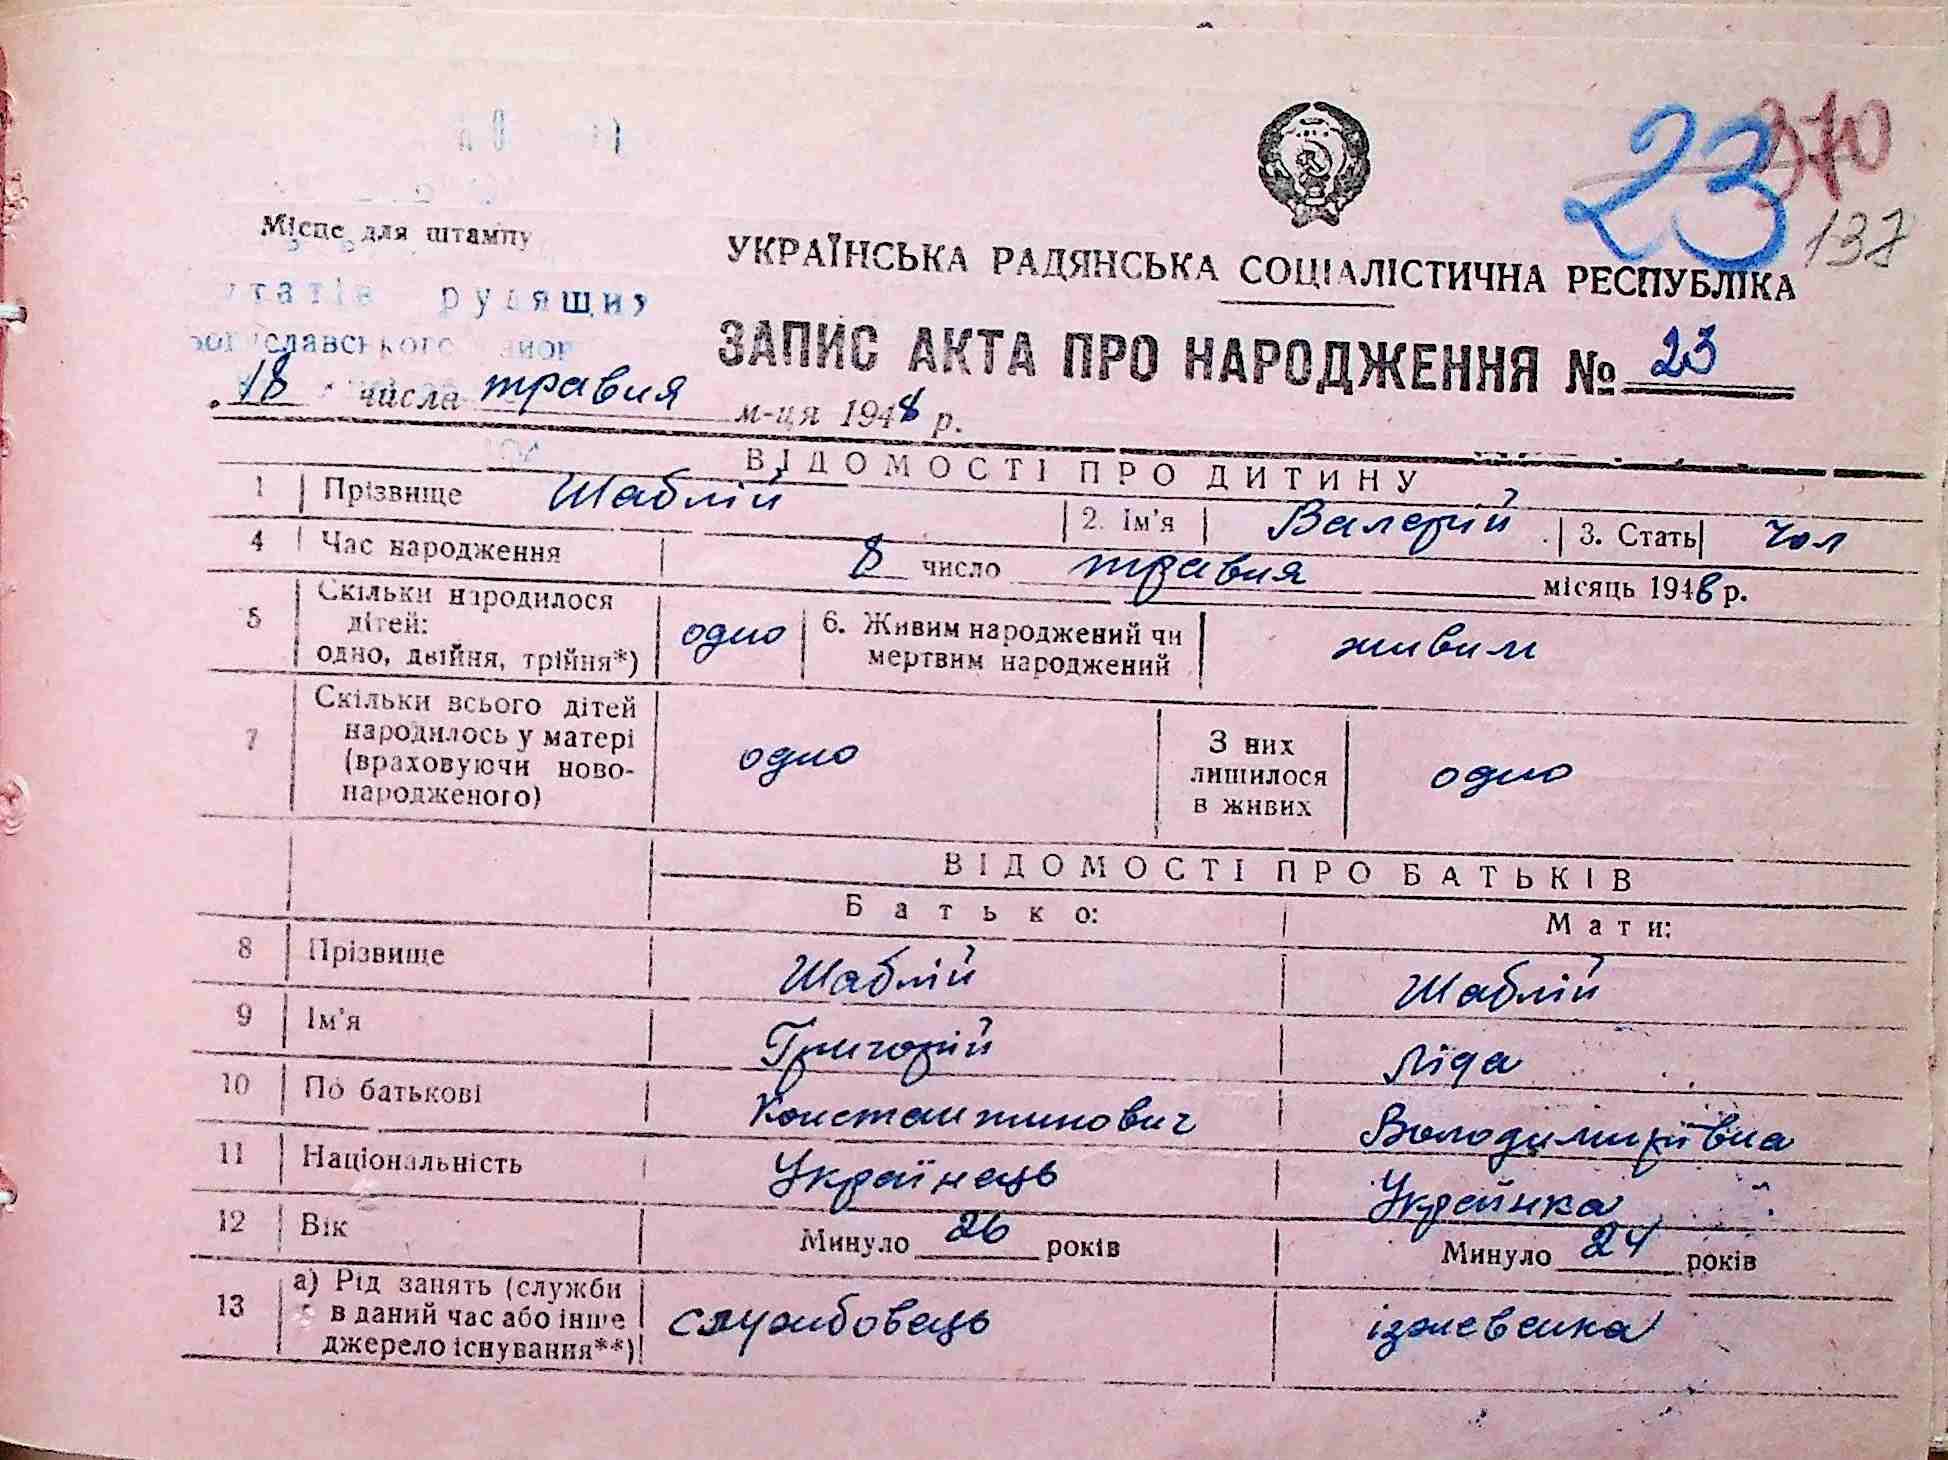 23 370
137
Місце для штампу
УКРАЇНСЬКА РАДЯНСЬКА СОЦІАЛІСТИЧНА РЕСПУБЛІКА
ЗАПИС АКТА ПРО НАРОДЖЕННЯ № 23
18 числа травня м-ця 1948 р.
ВІДОМОСТІ ПРО ДИТИНУ
1 Прізвище Шаблій 2. Ім'я Валерій 3. Стать чол
4 Час народження 8 число травня місяць 1948 р.
5 Скільки народилося дітей: одно, двійня, трійня*) одно 6. Живим народжений чи мертвим народжений живим
7 Скільки всього дітей народилось у матері (враховуючи новонародженого) одно З них лишилося в живих одно
ВІДОМОСТІ ПРО БАТЬКІВ
Батько: Мати:
8 Прізвище Шаблій Шаблій
9 Ім'я Григорій Ліда
10 По батькові Константинович Володимирівна
11 Національність Українець Українка
12 Вік Минуло 26 років Минуло 24 років
13 а) Рід занять (служби в даний час або інше джерело існування**) службовець